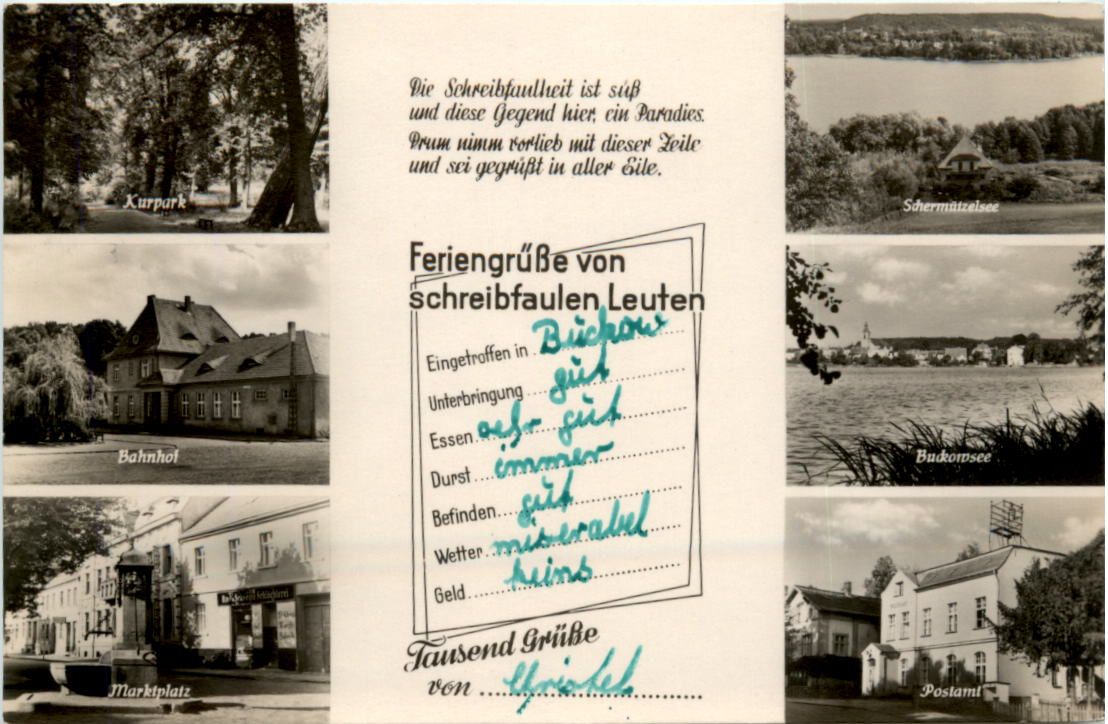 Kurpark
Bahnhof
Marktplatz
Die Schreibfaulheit ist süß
und diese Gegend hier, ein Paradies.
Drum nimm vorlieb mit dieser Zeile
und sei gegrüßt in aller Eile.
Feriengrüße von
schreibfaulen Leuten
Eingetroffen in Buckow
Unterbringung gut
Essen sehr gut
Durst immer
Befinden gut
Wetter miserabel
Geld keins
Tausend Grüße
von Christel
Schermützelsee
Buckowsee
Postamt